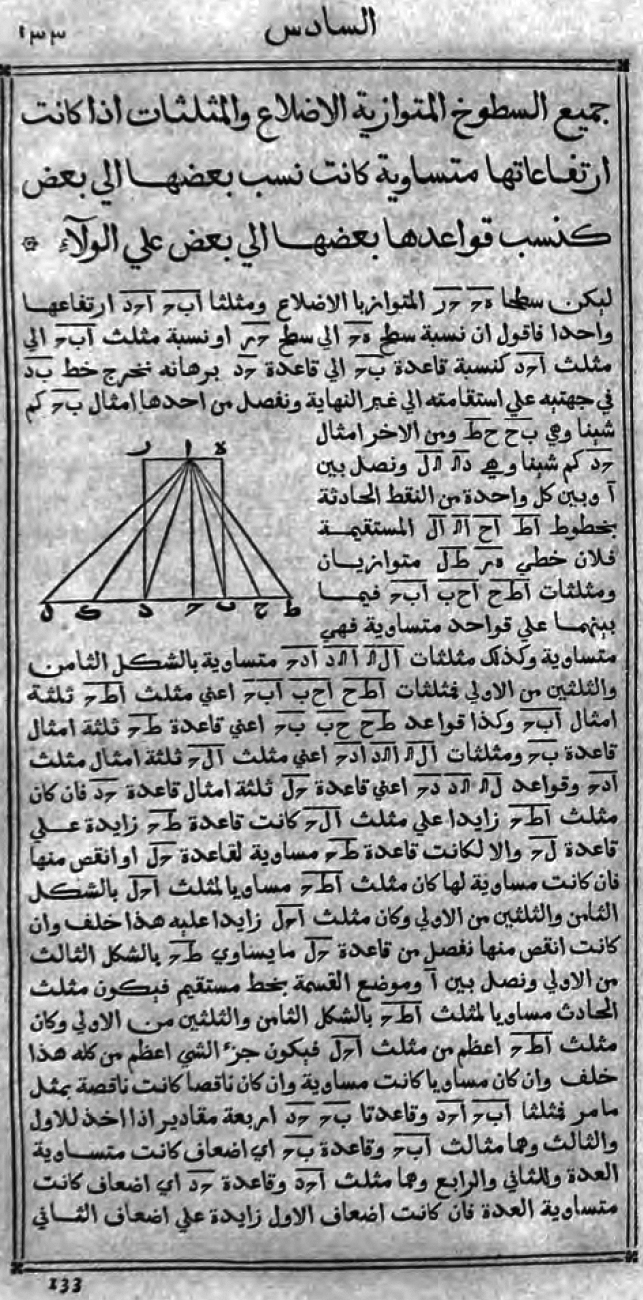 السادس
١٣٣
جميع السطوح المتوازية الاضلاع والمثلثات اذا كانت
ارتفاعاتها متساوية كانت نسب بعضها الي بعض
كنسب قواعدها بعضها الي بعض علي الولآء
ليكن سطحا هح حر المتوازيا الاضلاع ومثلثا ابح احد ارتفاعها
واحدا فاقول ان نسبة سطح هح الي سطح حر او نسبة مثلث ابح الي
مثلث احد كنسبة قاعدة بح الي قاعدة حد برهانه نخرج خط بد
في جهتيه علي استقامته الي غير النهاية ونفصل من احدها امثال بح كم
شينا وهي بح حط ومن الاخر امثال
حد كم شينا وهي دك كل ونصل بين
آ وبين كل واحدة من النقط الحادثة
بخطوط اط اح اك ال المستقيمة
فلان خطي هر طل متوازيان
ومثلثات اطح احب ابح فيما
بينهما علي قواعد متساوية فهي
ر ا ه
ل ك د ح ب ح ط
متساوية وكذلك مثلثات الك اكد ادح متساوية بالشكل الثامن
والثلثين من الاولي فمثلثات اطح احب ابح اعني مثلث اطح ثلثة
امثال ابح وكذا قواعد طح حب بح اعني قاعدة طح ثلثة امثال
قاعدة بح ومثلثات الك اكد ادح اعني مثلث الح ثلثة امثال مثلث
ادح وقواعد لك كد دح اعني قاعدة حل ثلثة امثال قاعدة حد فان كان
مثلث اطح زايدا علي مثلث الح كانت قاعدة طح زايدة علي
قاعدة لح والا لكانت قاعدة طح مساوية لقاعدة حل او انقص منها
فان كانت مساوية لها كان مثلث اطح مساويا لمثلث احل بالشكل
الثامن والثلثين من الاولي وكان مثلث احل زايدا عليه هذا خلف وان
كانت انقص منها نفصل من قاعدة حل ما يساوي طح بالشكل الثالث
من الاولي ونصل بين آ وموضع القسمة بخط مستقيم فيكون مثلث
الحادث مساويا لمثلث اطح بالشكل الثامن والثلثين من الاولي وكان
مثلث اطح اعظم من مثلث احل فيكون جزء الشي اعظم من كله هذا
خلف وان كان مساويا كانت مساوية وان كان ناقصا كانت ناقصة بمثل
مامر فمثلثا ابح احد وقاعدتا بح حد اربعة مقادير اذا اخذ للاول
والثالث وهما مثالث ابح وقاعدة بح اي اضعاف كانت متساوية
العدة وللثاني والرابع وهما مثلث احد وقاعدة حد اي اضعاف كانت
متساوية العدة فان كانت اضعاف الاول زايدة علي اضعاف الثاني
133